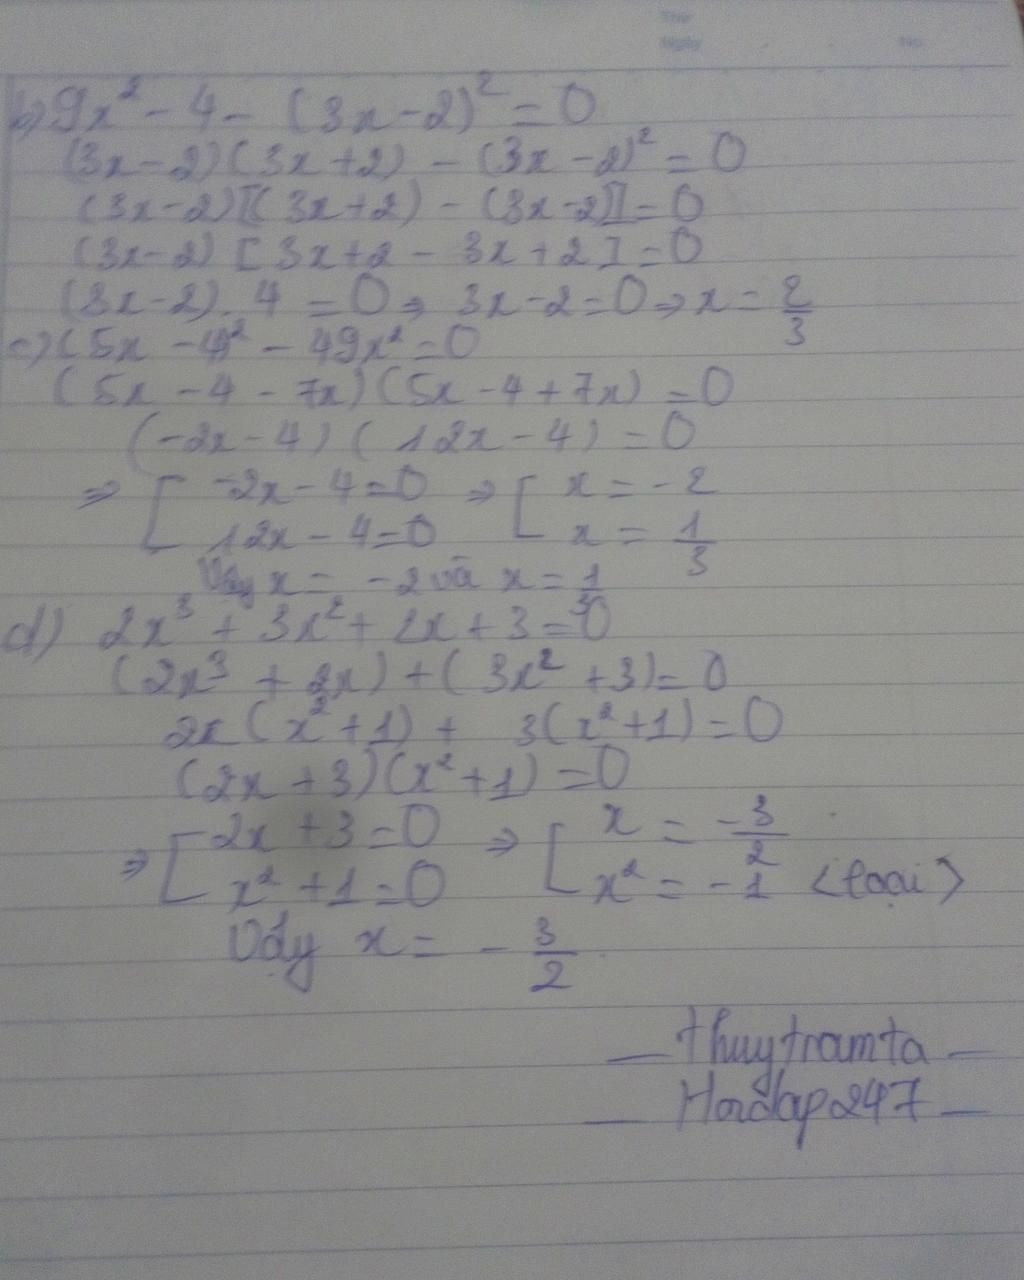 Thứ
Ngày . . No.
b) 9x² - 4 - (3x-2)² = 0
(3x-2)(3x+2) - (3x-2)² = 0
(3x-2)[(3x+2) - (3x-2)] = 0
(3x-2) [3x+2 - 3x+2] = 0
(3x-2).4 = 0 ⇒ 3x-2=0 ⇒ x = 2/3
c) (5x - 4)² - 49x² = 0
(5x - 4 - 7x)(5x - 4 + 7x) = 0
(-2x - 4) (12x - 4) = 0
⇒ [ -2x - 4 = 0 ⇒ [ x = -2
12x - 4 = 0 x = 1/3
Vậy x = -2 và x = 1/3
d) 2x³ + 3x² + 2x + 3 = 0
(2x³ + 2x) + (3x² + 3) = 0
2x(x² + 1) + 3(x² + 1) = 0
(2x + 3)(x² + 1) = 0
⇒ [ 2x + 3 = 0 ⇒ [ x = -3/2
x² + 1 = 0 x² = -1 <loại>
Vậy x = - 3/2 .
— thuytramta —
— Hoidap247 —